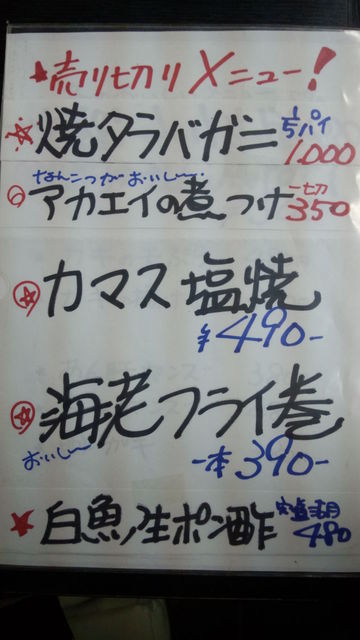 ★売り切りメニュー!
☆焼タラバガニ 1/5パイ 1.000
なんこつがおいしー
アカエイの煮つけ 一切 350
☆カマス塩焼
¥490-
☆海老フライ巻
おいしー 一本390-
★白魚ノ生ポン酢 480